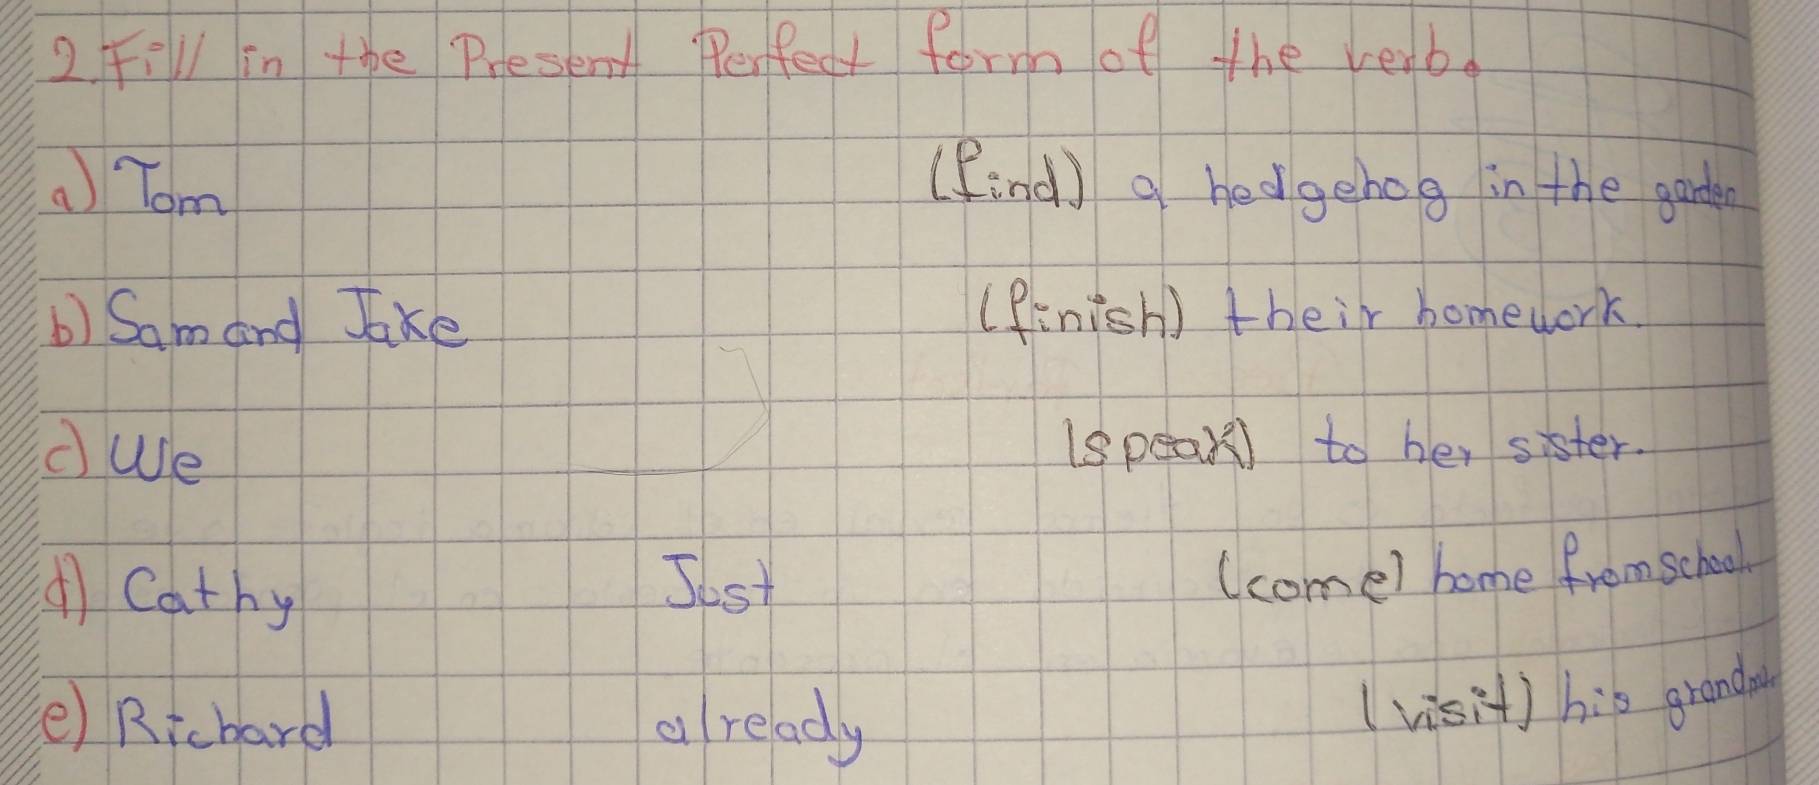 2. Fill in the Present Perfect form of the verb.
a) Tom (find) a hedgehog in the garden
b) Sam and Jake (finish) their homework.
c) We (speak) to her sister.
d) Cathy Just (come) home from school.
e) Richard already (visit) his